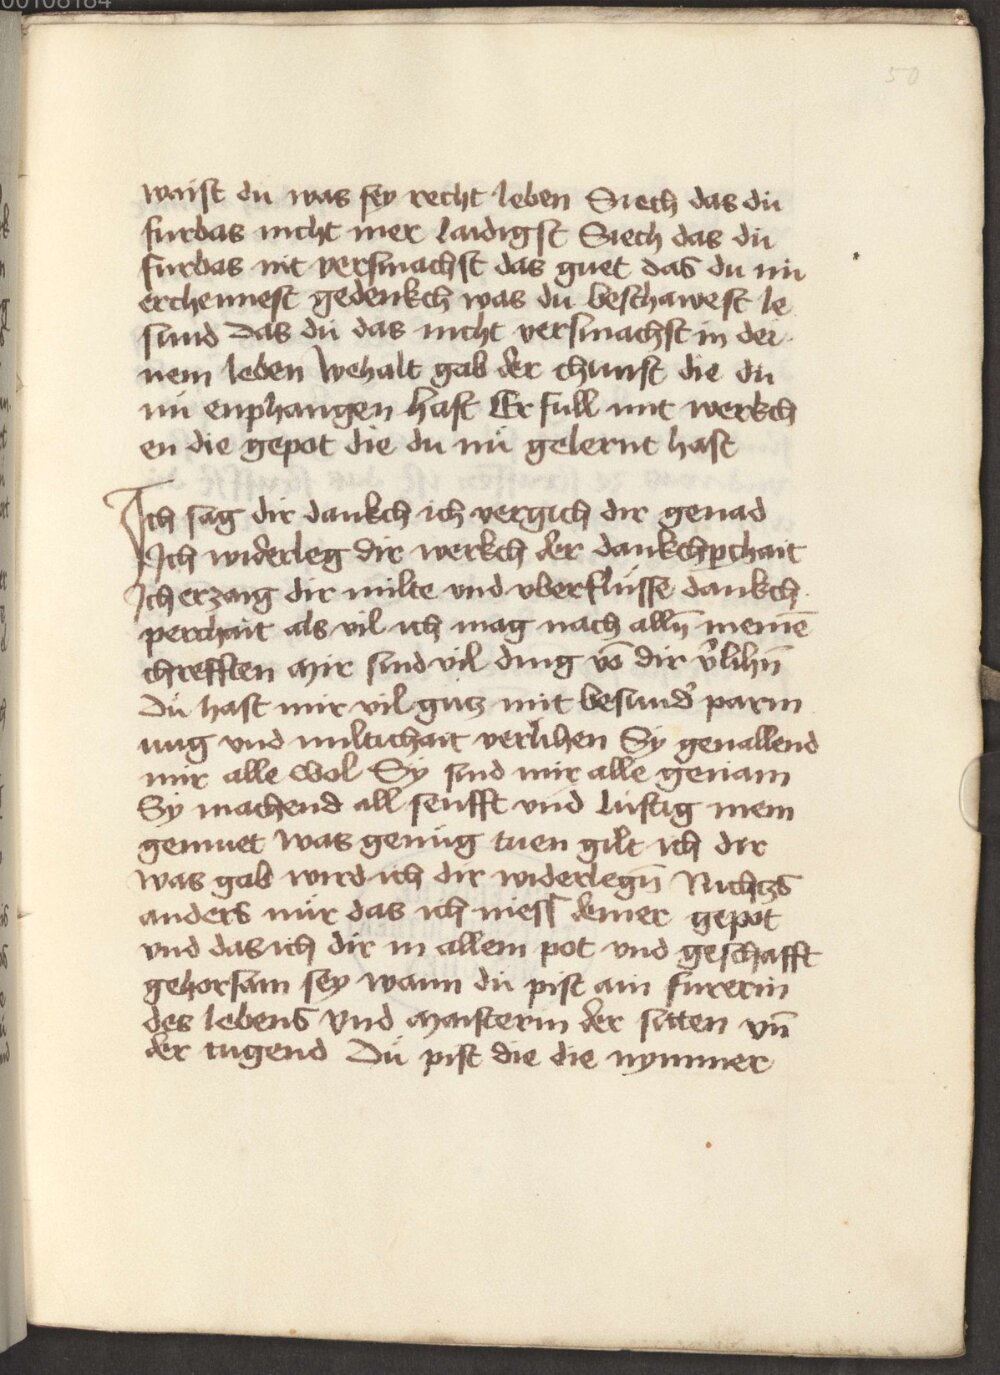 00108184
50
waist du was sey recht leben Siech das dü
furbas nicht mer laidigst Siech das dü
furbas nit versmachst das guet das du nü
erchennest gedenkch was du beschawest le
sund Das du das nicht versmachst in dei
nem leben Wehalt gab der chunst die du
nü enphangen hast Er full mit werkch
en die gepot die du nü gelernt hast
Ich sag dir dankch ich vergich dir genad
Ich widerleg dir werkch der dankchperchait
Ich erzaig dir milte vnd vberflüsse dankch
perchait als vil ich mag nach alln̄ meinē
chrefften Mir sind vil ding vō dir v̾lihn̄
Dü hast mir vil gutz mit besund̾ parm
ung vnd miltichait verlihen Sy geuallend
mir alle wol Sy sind mir alle genam
Sy machend all senfft vnd lustig mein
gemuet Was genüg tuen gilt ich dir
was gab wird ich dir widerlegn̄ Nichtzs
anders nür das ich niess deiner gepot
vnd das ich dir in allem pot vnd geschafft
gehorsam sey wann dü pist ain fürerin
des lebens Vnd Maisterin der sitten vn̄
der tugend Dü pist die die nymmer